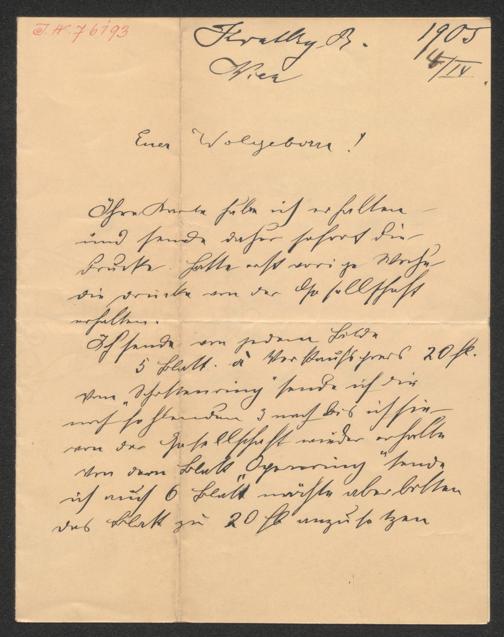 J. N. 76193
Kratky R.
Wien
1905
14/IV.
Euer Wolgeboren!
Ihre Karte habe ich erhalten
und sende daher sofort die
Drucke. Hatte erst vorige Woche
die Drucke von der Gesellschaft
erhalten.
Ich sende von jedem Bilde
5 Blatt. à Verkaufspreis 20 K.
vom "Schottenring" sende ich die
noch fehlenden 3 nach bis ich sie
von der Gesellschaft wieder erhalte
Von dem Blatt "Opernring" sende
ich auch 6 Blatt möchte aber bitten
das Blatt zu 20 K anzusetzen